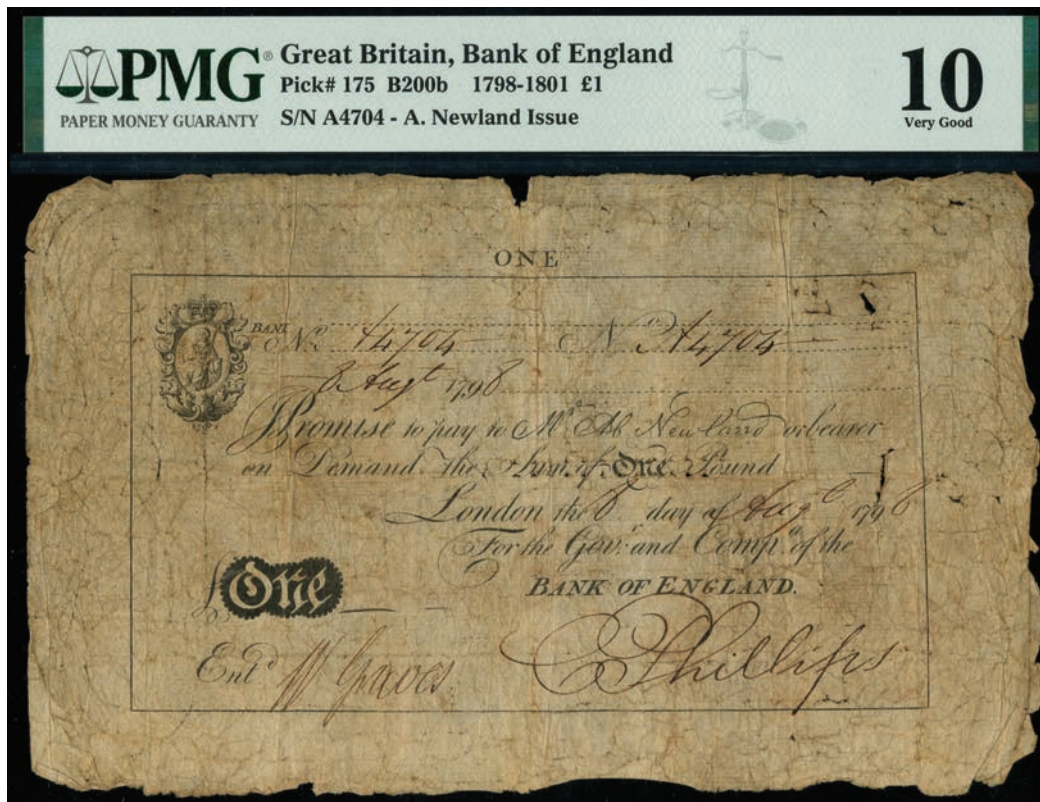 PMG®
PAPER MONEY GUARANTY
Great Britain, Bank of England
Pick# 175 B200b 1798-1801 £1
S/N A4704 - A. Newland Issue
10
Very Good
ONE
BANK No. A4704 No. A4704
8 Augt 1798
I Promise to pay to Mr. Ab Newland or bearer
on Demand the Sum of One Pound
London the 8 day of Augt 1798
For the Govr. and Compa. of the
BANK OF ENGLAND.
£One
Entd W Graves
C Phillips